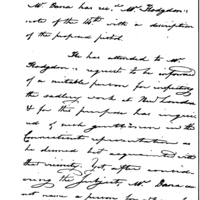 Mr Dana has recd. Mr Hodgdon's
note of the 14th with a description
of the proposed pistol.
He has attended to Mr
Hodgdon's request to be informed
of a suitable person for inspecting
the sadlery work at New London
& for this purpose has enquired
of such gentlemen in the
Connecticut representation as
he deemed best acquainted with
that vicinity. Yet, after consid-
ering the subject, Mr Dana can
not name a person